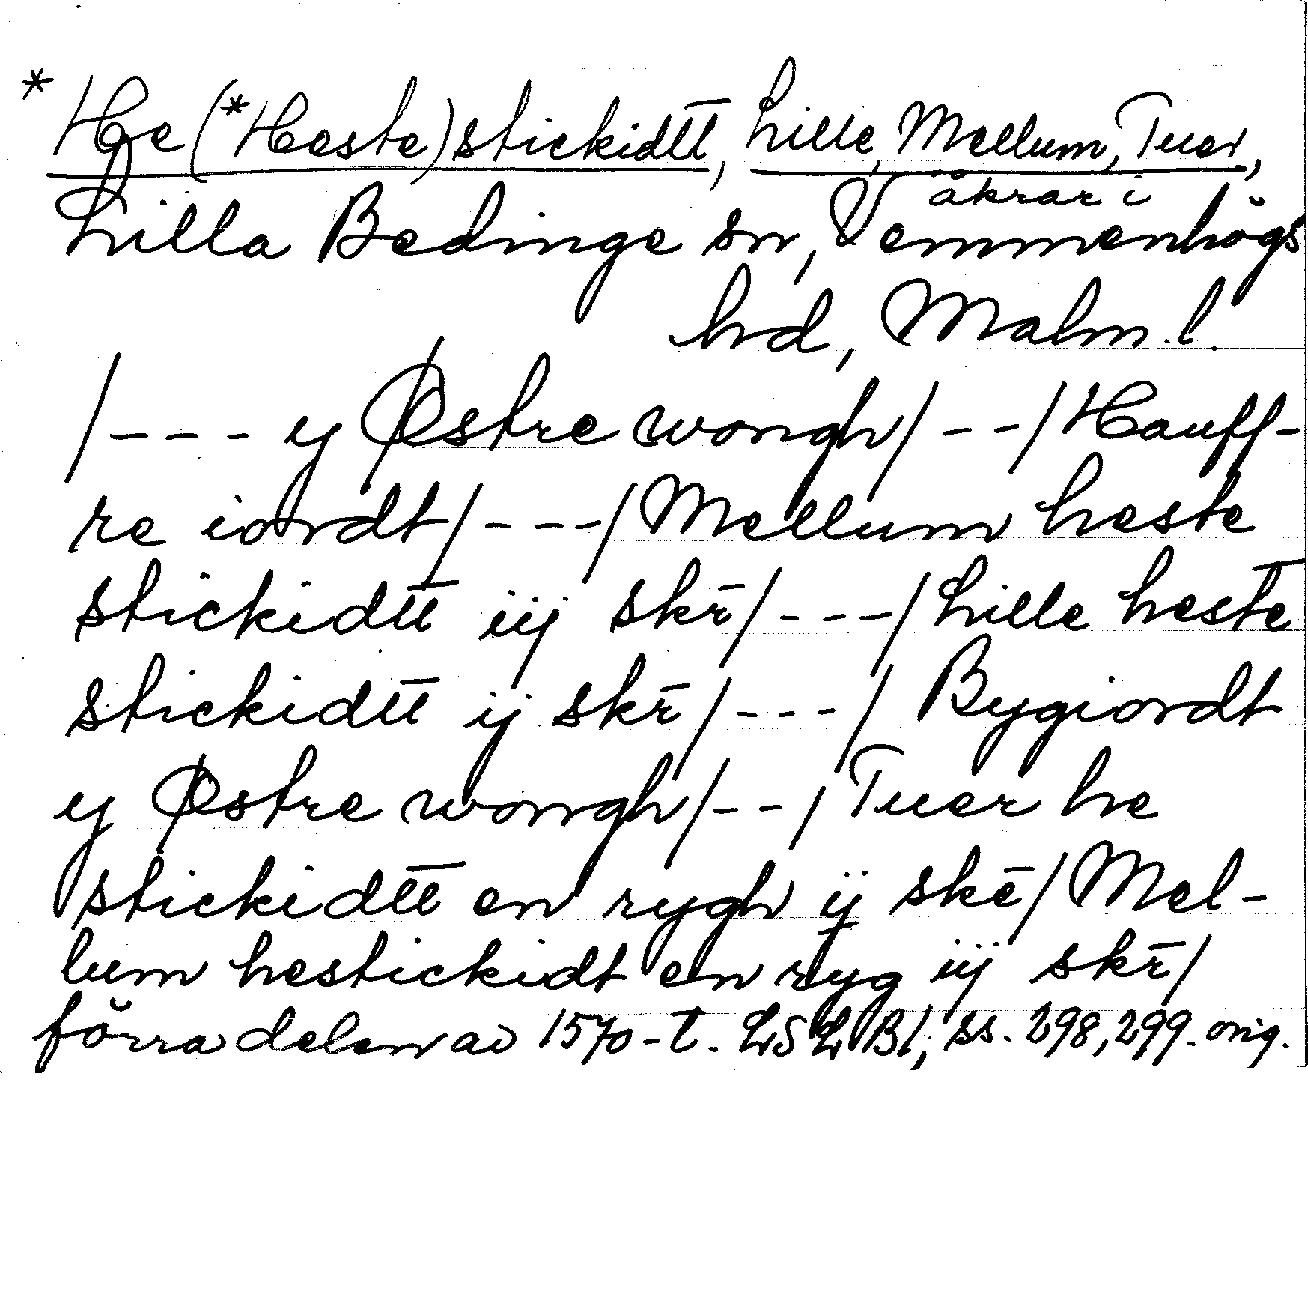 * He (*Heste) stickidtt̄, Lille, Mellum, Tuer,
åkrar i
Lilla Bedinge sn, Vemmenhögs
hd, Malm.l.
/--- y Østre wongh/--/Hauff-
re iordt/---/Mellum heste
stickidtt̄ iij skr̄/---/Lille heste
stickidtt̄ ij skr̄/---/ Bygiordt
y Østre wongh/--/Tuer he
stickidtt̄ en rygh ij skē/Mel-
lum hestickidt en ryg iij skr̄/
förra delen av 1570-t. LSLBl, ss. 298, 299. orig.